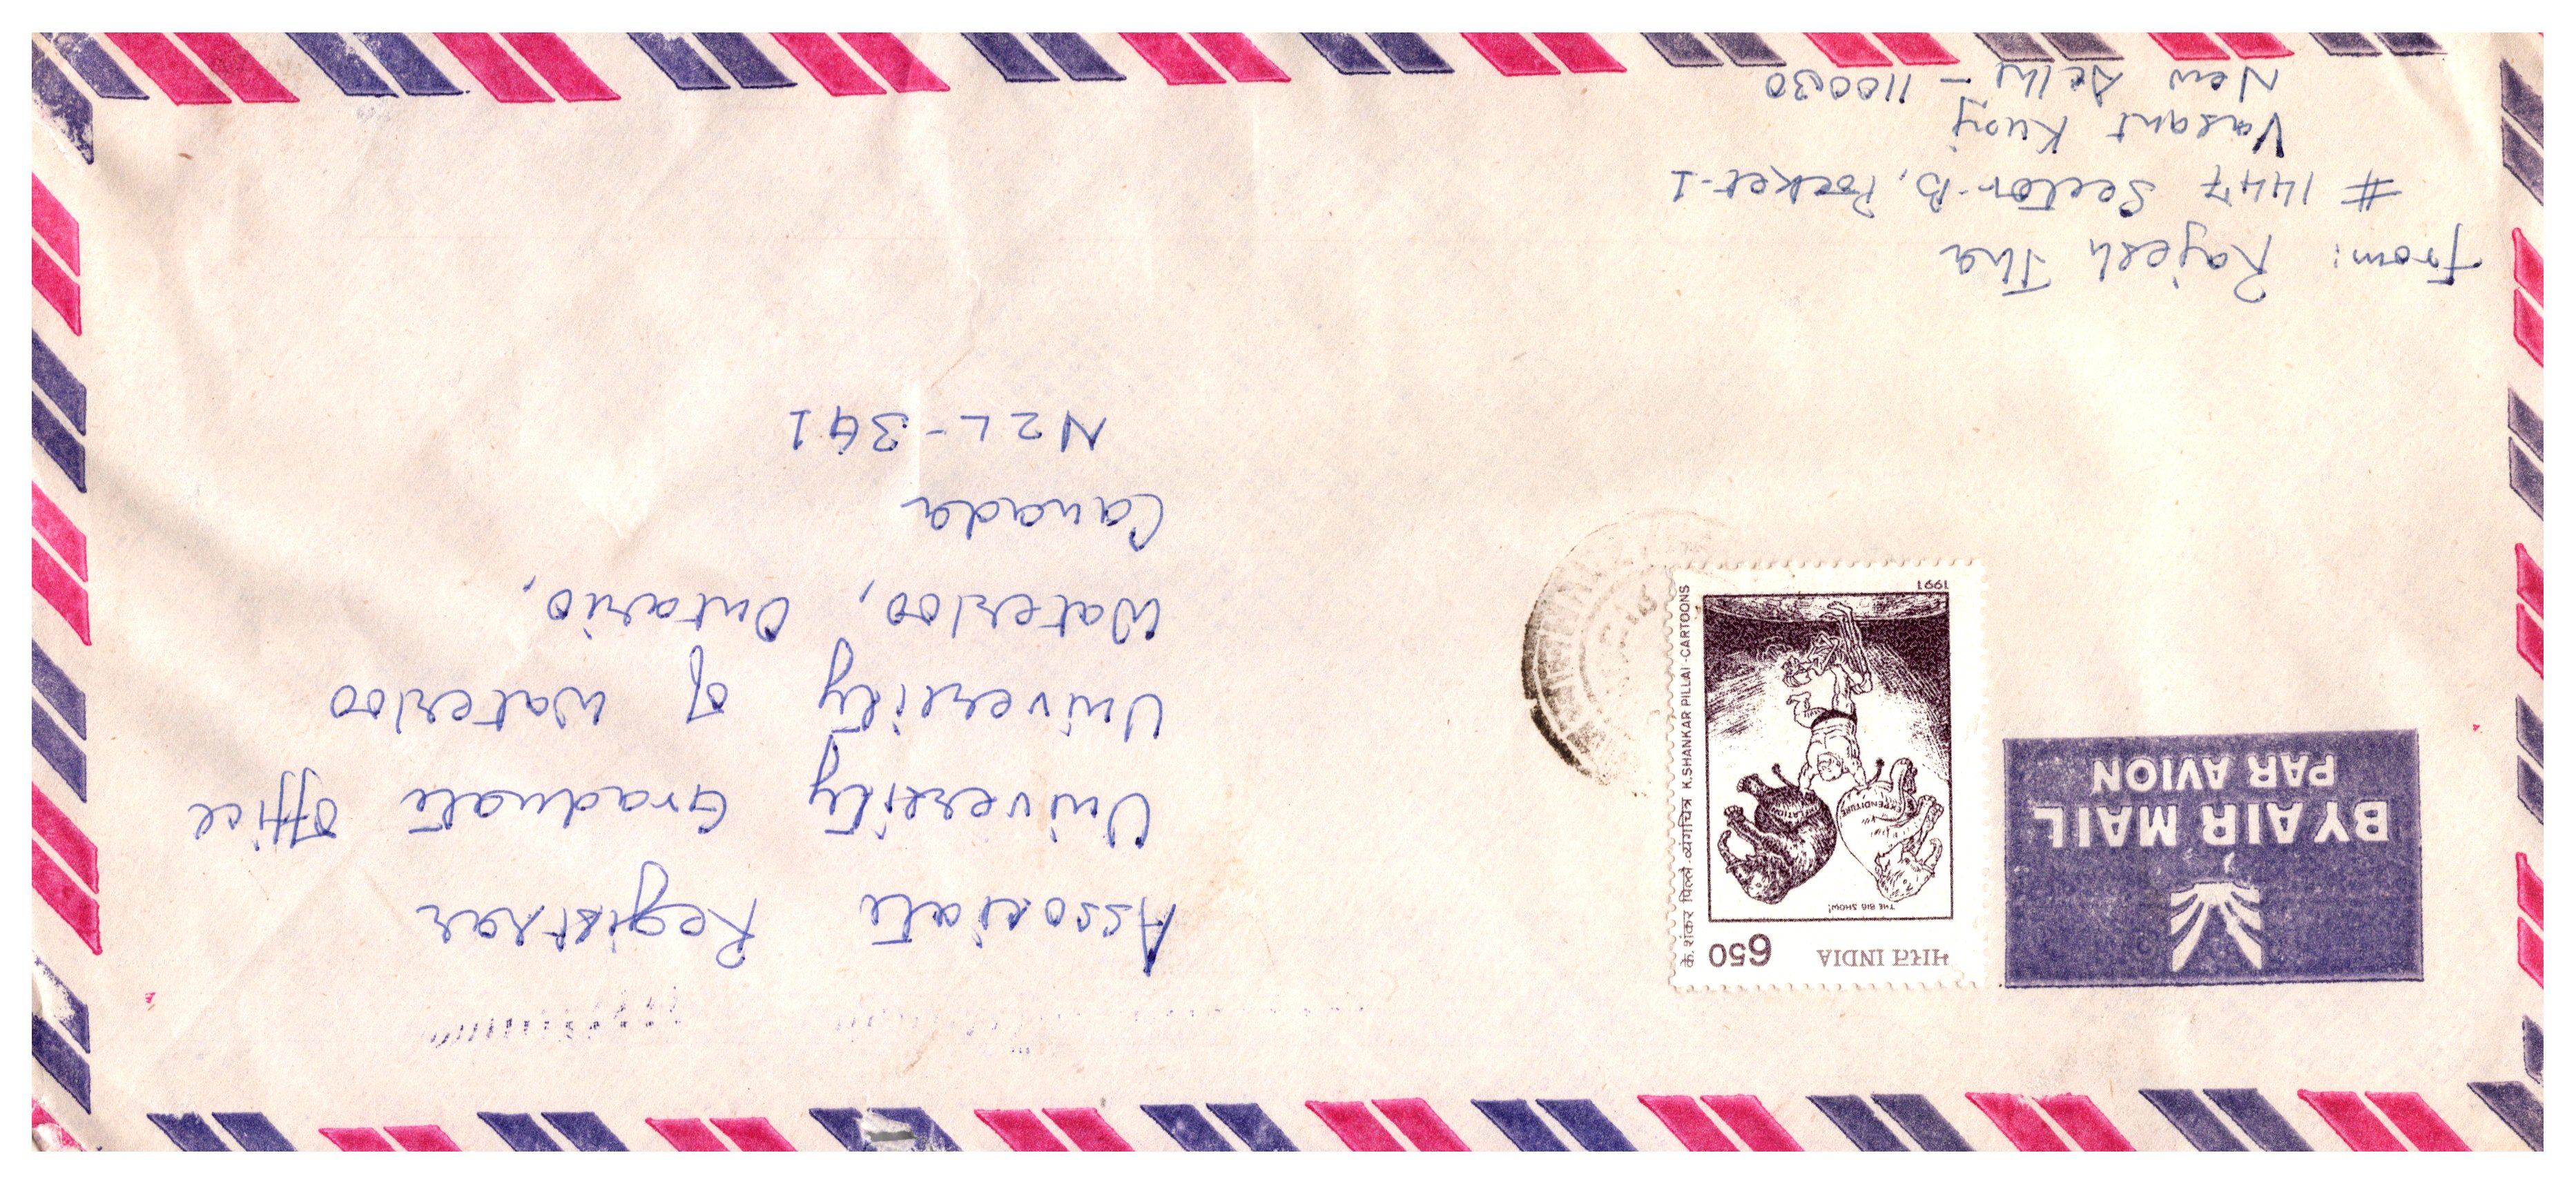 BY AIR MAIL
PAR AVION
भारत INDIA 650
THE BIG SHOW!
के. शंकर पिल्लै-व्यंगचित्र K.SHANKAR PILLAI-CARTOONS
1991
Associate Registrar
University Graduate Office
University of Waterloo
Waterloo, Ontario,
Canada
N2L-3G1
From: Rajesh Jha
# 1447 Sector-B, Pocket-1
Vasant Kunj
New Delhi - 110030